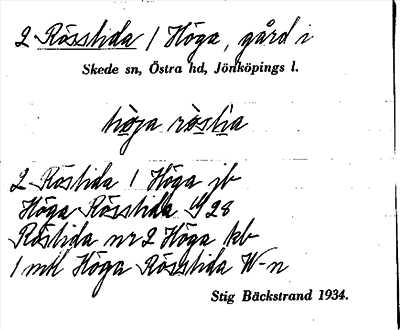 2 Rösslida / Höga, gård i
Skede sn, Östra hd, Jönköpings l.
höja röslia
2 Röslida / Höga jb
Höga Rösslida GS 28
Röslida nr 2 Höga kb
1 mtl Höga Rösslida W-n
Stig Bäckstrand 1934.